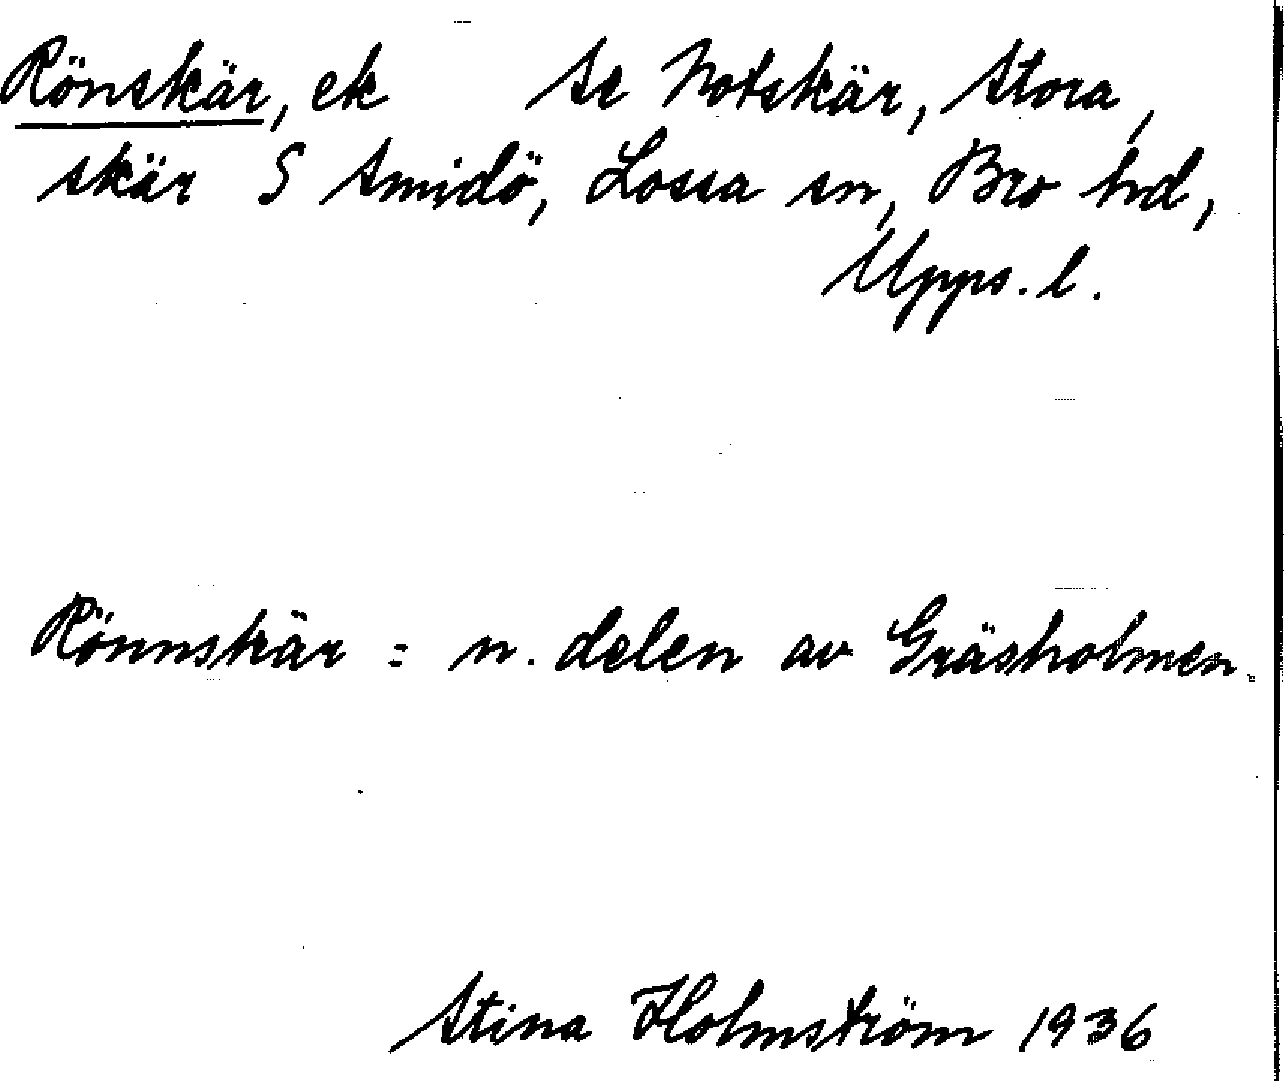 Rönskär, ek Se Notskär, Stora,
skär S Smidö, Lossa sn, Bro hd,
Upps. l.
Rönnskär = n. delen av Gräsholmen.
Stina Holmström 1936